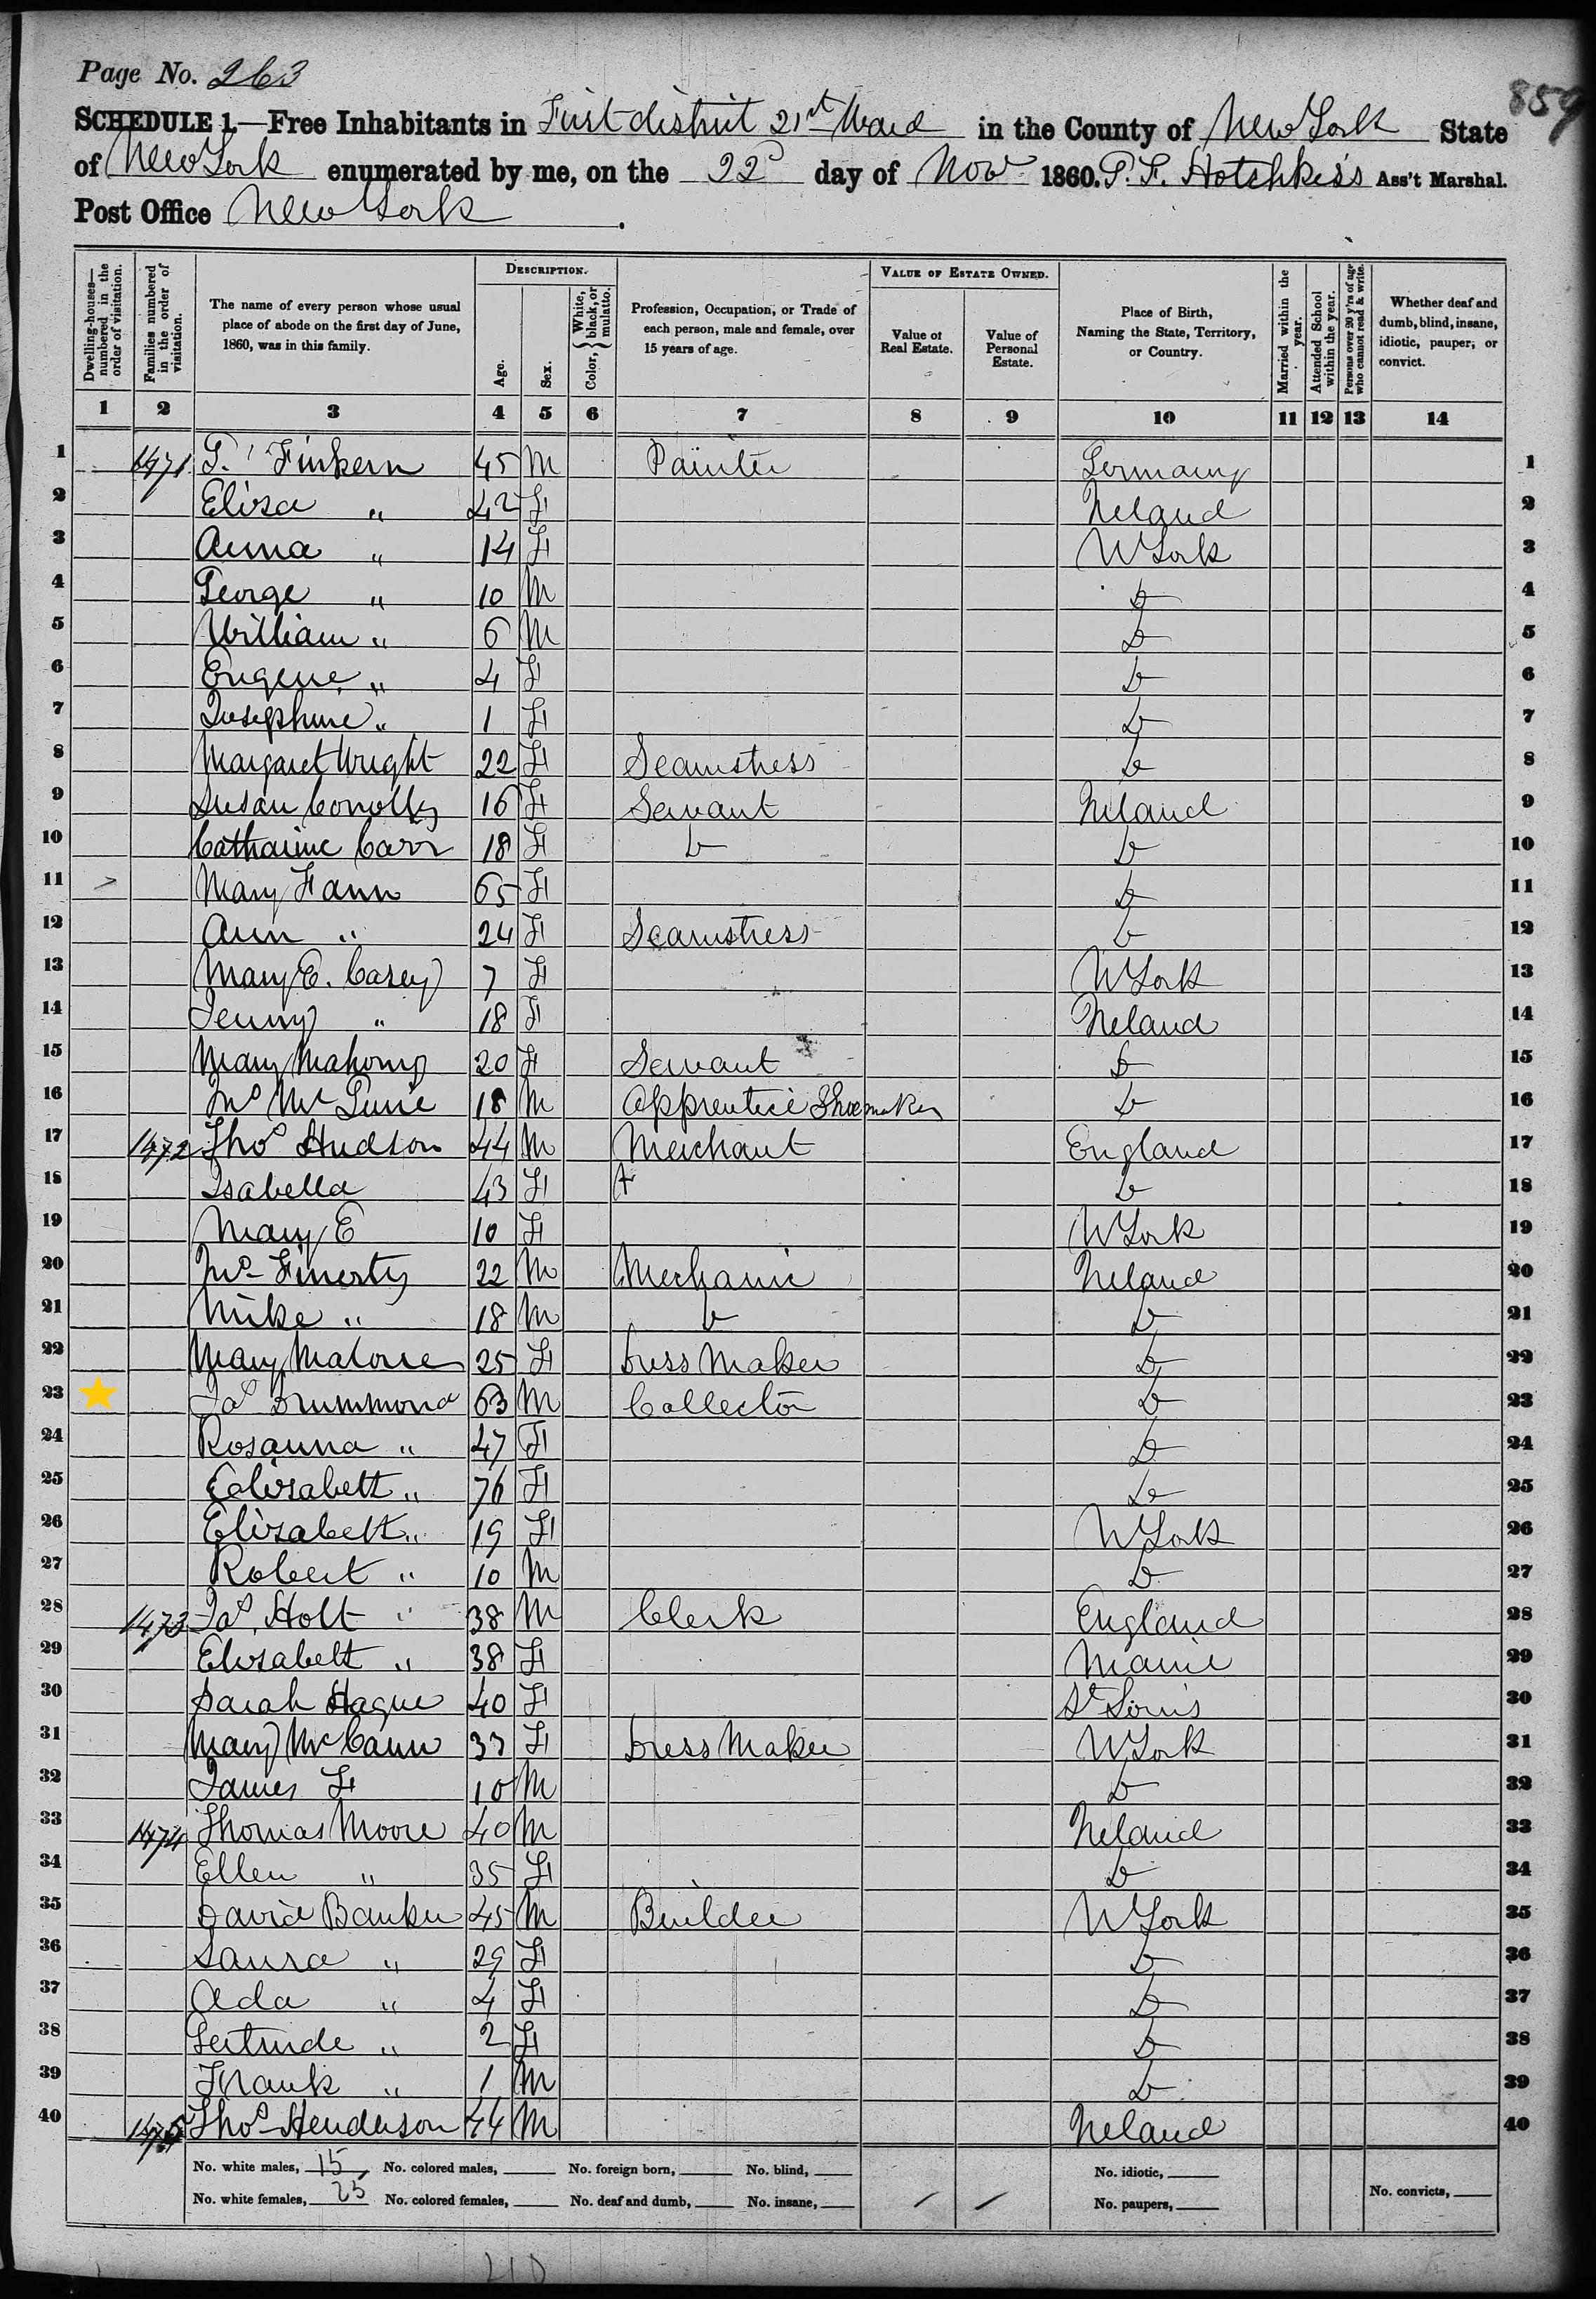 Page No. 263
859
SCHEDULE 1.—Free Inhabitants in First district 21st Ward in the County of New York State
of New York enumerated by me, on the 22d day of Nov 1860. P. F. Hotchkiss Ass't Marshal.
Post Office New York.
Dwelling-houses—numbered in the order of visitation.
Families numbered in the order of visitation.
The name of every person whose usual place of abode on the first day of June, 1860, was in this family.
DESCRIPTION.
Age.
Sex.
Color, { White, black, or mulatto.
Profession, Occupation, or Trade of each person, male and female, over 15 years of age.
VALUE OF ESTATE OWNED.
Value of Real Estate.
Value of Personal Estate.
Place of Birth, Naming the State, Territory, or Country.
Married within the year.
Attended School within the year.
Persons over 20 y'rs of age who cannot read & write.
Whether deaf and dumb, blind, insane, idiotic, pauper, or convict.
1 2 3 4 5 6 7 8 9 10 11 12 13 14
1 1471 Finkern 45 M Painter Germany 1
2 Eliza " 42 F Ireland 2
3 Anna " 14 F N York 3
4 George " 10 M D 4
5 William " 6 M D 5
6 Eugene " 4 F D 6
7 Josephine " 1 F D 7
8 Margaret Wright 22 F Seamstress D 8
9 Susan Conolly 16 F Servant Ireland 9
10 Catharine Carr 18 F D D 10
11 Mary Fann 65 F D 11
12 Ann " 24 F Seamstress D 12
13 Mary E. Casey 7 F N York 13
14 Jenny " 18 F Ireland 14
15 Mary Mahony 20 F Servant D 15
16 Jno Mc 18 M Apprentice Shoemaker D 16
17 1472 Thos Hudson 44 M Merchant England 17
18 Isabella 43 F D 18
19 Mary E 10 F N York 19
20 Jno Finerty 22 M Mechanic Ireland 20
21 Mike " 18 M D D 21
22 Mary Malone 25 F Dress Maker D 22
23 Jas Drummond 63 M Collector D 23
24 Rosanna " 47 F D 24
25 Elisabeth " 76 F D 25
26 Elizabeth " 19 F N York 26
27 Robert " 10 M D 27
28 1473 Jas. Holt " 38 M Clerk England 28
29 Elisabeth " 38 F Maine 29
30 Sarah Hague 40 F St Louis 30
31 Mary McCann 33 F Dress Maker N York 31
32 James F 10 M D 32
33 1474 Thomas Moore 40 M Ireland 33
34 Ellen " 35 F D 34
35 David Banker 45 M Builder N York 35
36 Laura " 29 F D 36
37 Ada " 4 F D 37
38 Gertrude " 2 F D 38
39 Frank " 1 M D 39
40 1475 Thos Henderson 44 M Ireland 40
No. white males, 15 No. colored males, No. foreign born, No. blind, No. idiotic,
No. white females, 25 No. colored females, No. deaf and dumb, No. insane, No. paupers, No. convicts,